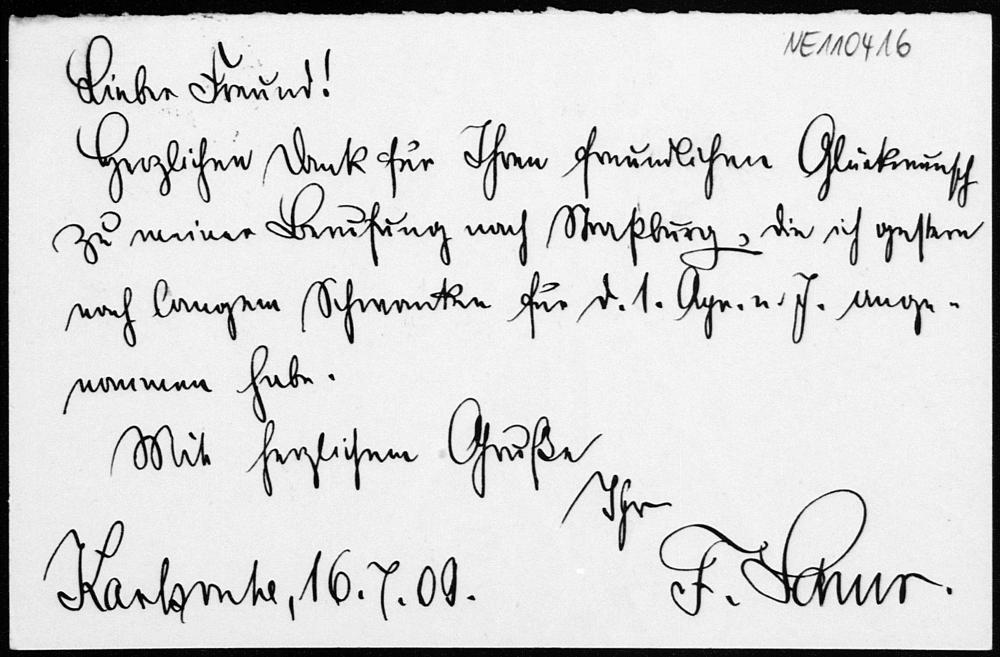 NE110416
Lieber Freund!
Herzlichen Dank für Ihren freundlichen Glückwunsch
zu meiner Berufung nach Straßburg, die ich gestern
nach langem Schwanken für d. 1. Apr. n. J. ange-
nommen habe.
Mit herzlichem Gruße
Ihr
F. Schur.
Karlsruhe, 16.7.09.